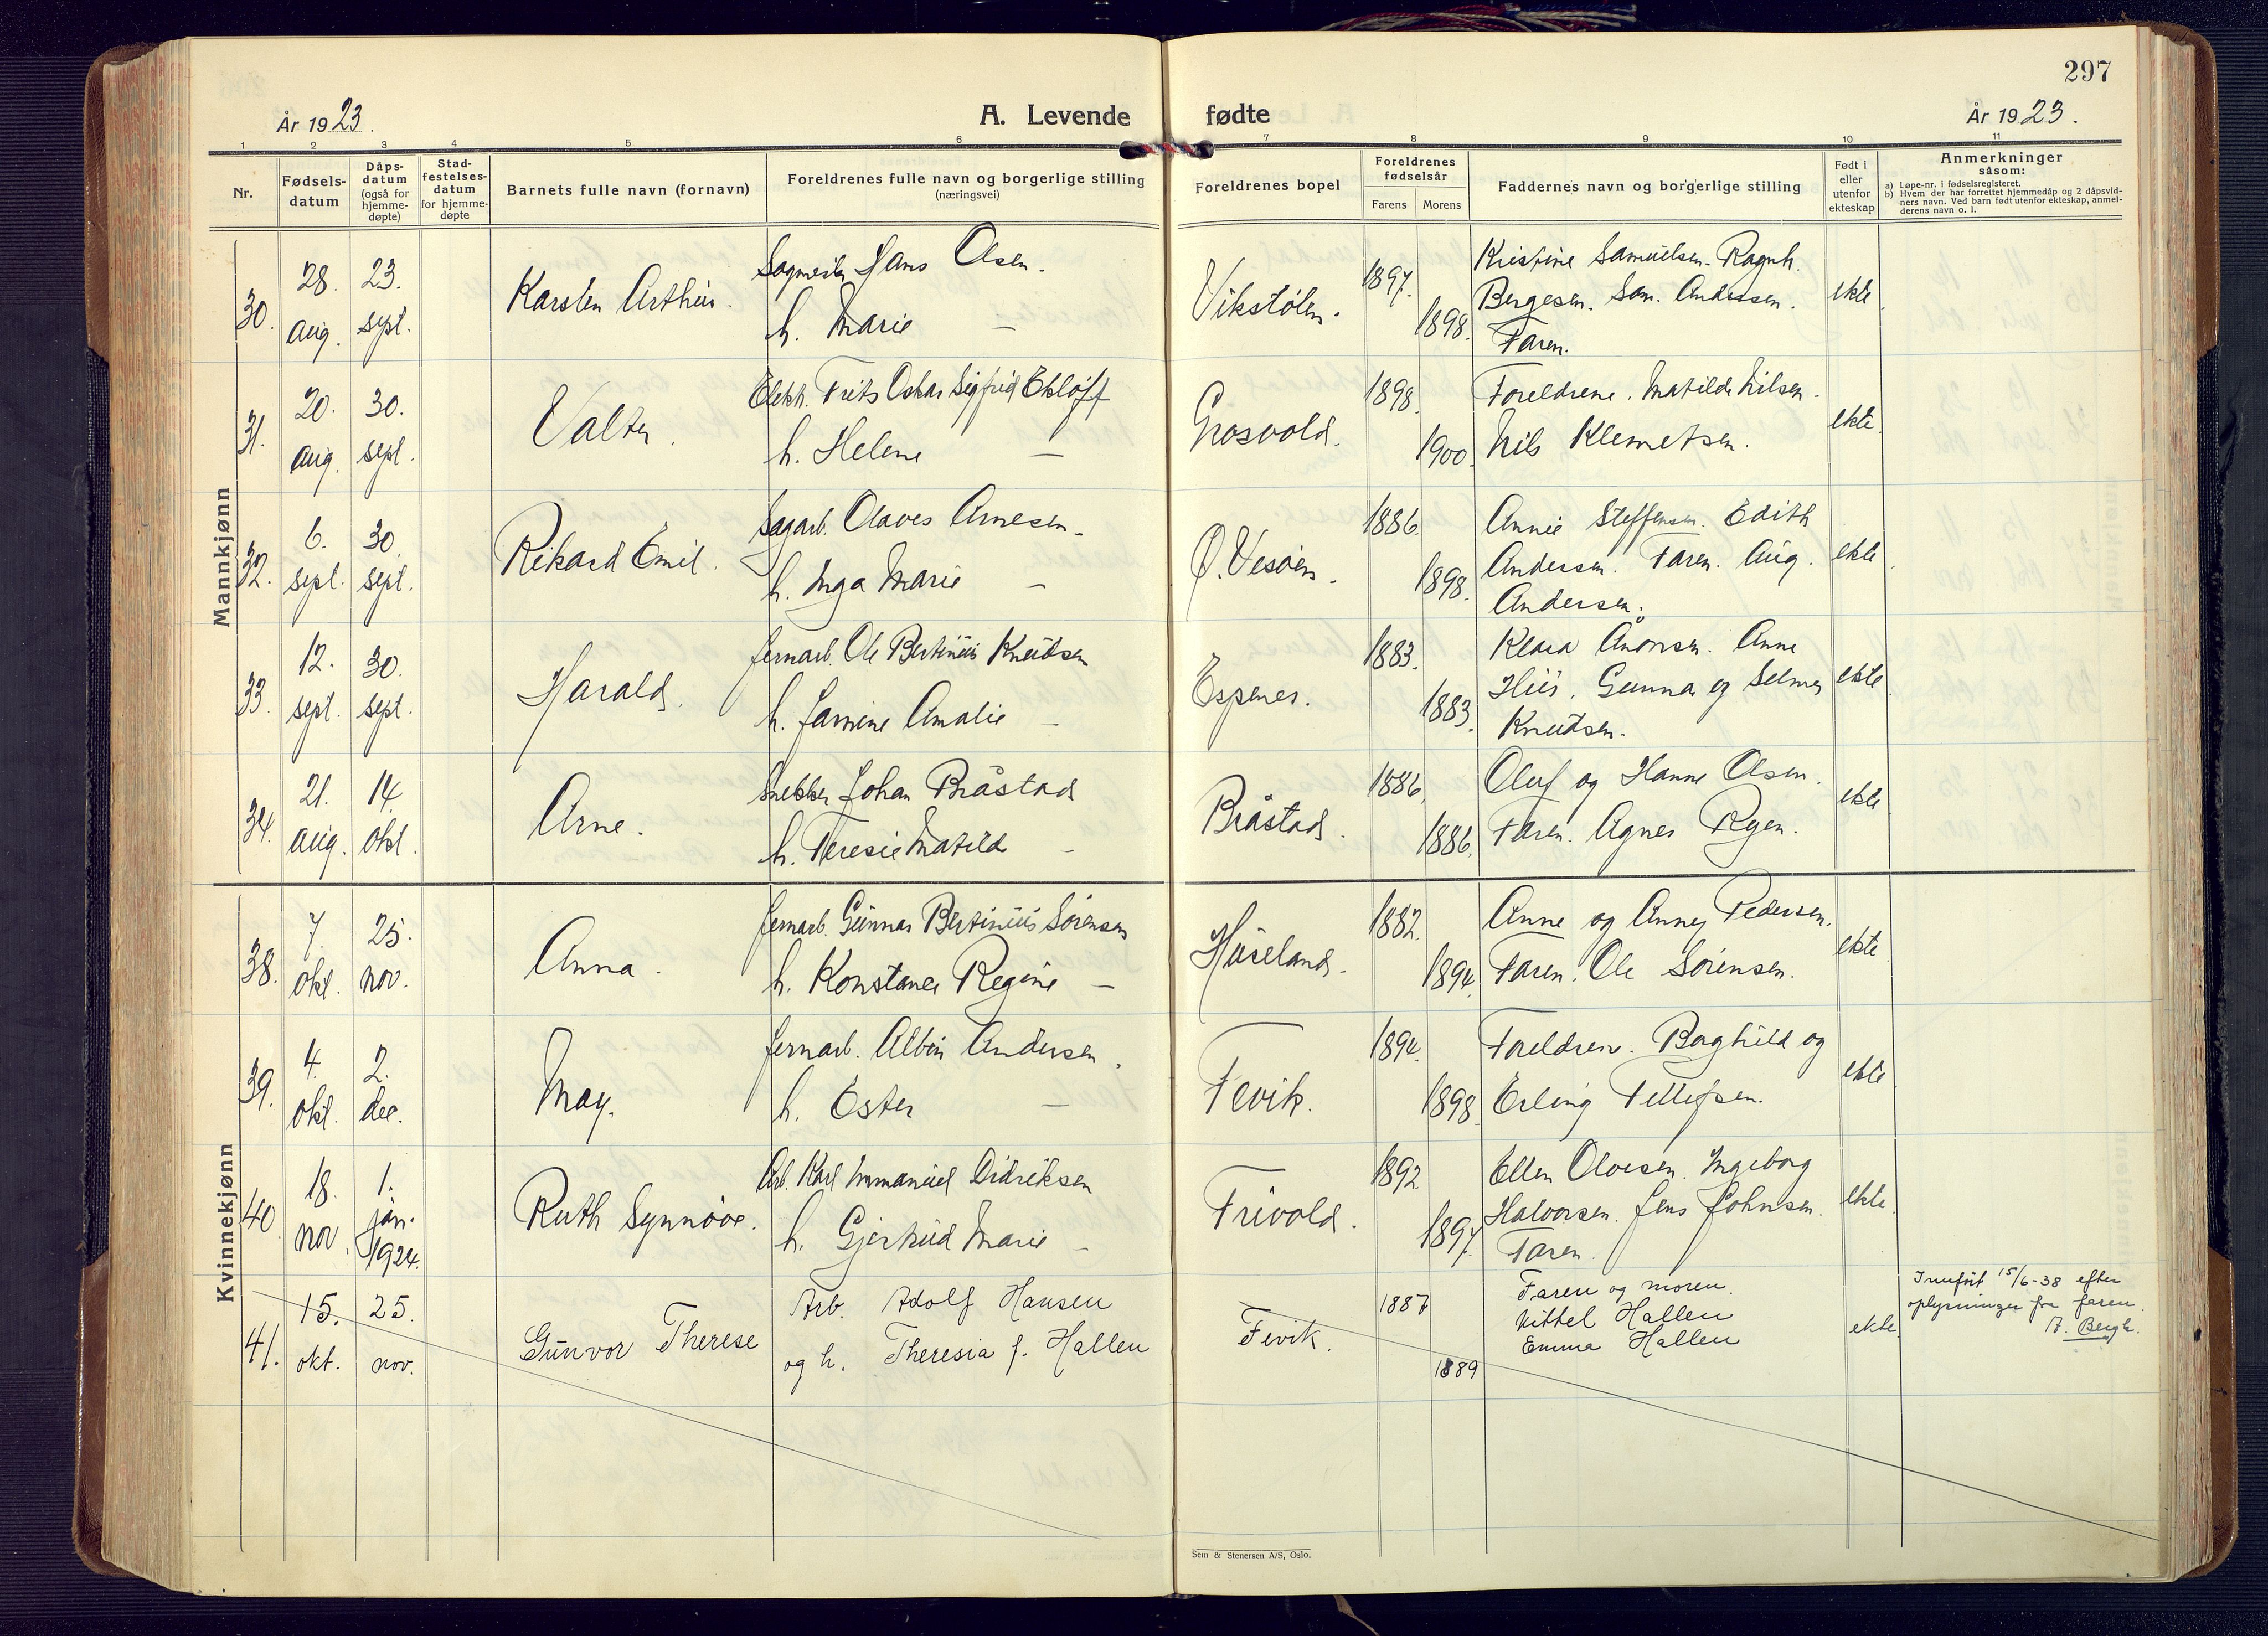 297
År 1923.
A. Levende fødte
År 1923.
1 2 3 4 5 6 7 8 9 10 11
Nr.
Fødsels-
datum
Dåps-
datum
(også for
hjemme-
døpte)
Stad-
festelses-
datum
for hjemme-
døpte
Barnets fulle navn (fornavn)
Foreldrenes fulle navn og borgerlige stilling
(næringsvei)
Foreldrenes bopel
Foreldrenes
fødselsår
Farens Morens
Faddernes navn og borgerlige stilling
Født i
eller
utenfor
ekteskap
Anmerkninger
såsom:
a) Løpe-nr. i fødselsregisteret.
b) Hvem der har forrettet hjemmedåp og 2 dåpsvid-
ners navn. Ved barn født utenfor ekteskap, anmel-
derens navn o. l.
Mannkjønn
30.
28.
aug.
23.
sept.
Karsten Arthur.
Sagmester Hans Olsen.
h. Marie —
Vikstølen.
1897.
1898.
Kristine Samuelsen. Ragnh.
Bergesen. Sam. Andersen.
Faren.
ekte
31.
20.
aug.
30.
sept.
Valter.
Elekk. Frits Oskar Sigfrid Ekløff
h. Helene —
Grosvold.
1898.
1900.
Foreldrene. Matilde Nilsen.
Nils Klemetsen.
ekte.
32.
6.
sept.
30.
sept.
Rikard Emil.
Sagarb. Olaves Arnesen.
h. Inga Marie —
Ø. Vesøen.
1886.
1898.
Annie Steffensen. Edith
Andersen. Faren. Aug.
Andersen.
ekte.
33.
12.
sept.
30.
sept.
Harald.
Jernarb. Ole Bertinius Knudsen
h. Jamine Amalie —
Espenes.
1883.
1883.
Klara Aanonsen. Anne
Hus. Gunnar og Selmer
Knudsen.
ekte
34.
21.
aug.
14.
okt.
Arne.
Snekker Johan Bråstad
h. Teresie Matild —
Bråstad.
1886.
1886.
Oluf og Hanne Olsen.
Faren. Agnes Ryen.
ekte
Kvinnekjønn
38.
7.
okt.
25.
nov.
Anna.
Jernarb. Gunnar Bertinius Sørensen
h. Konstance Regine —
Huseland.
1882.
1894.
Anne og Anney Pedersen.
Faren. Ole Sørensen.
ekte
39.
4.
okt.
2.
dec.
May.
Jernarb. Albin Andersen.
h. Ester —
Fevik.
1894.
1898.
Foreldrene. Borghild og
Erling Tellefsen.
ekte
40.
18.
nov.
1.
jan.
1924.
Ruth Synnøve.
Arb. Karl Immanuel Didriksen
h. Gjertrud Marie —
Frivold.
1892.
1897.
Ellen Olvesen. Ingeborg
Halvorsen. Jens Johnsen.
Faren.
ekte.
41.
15.
okt.
25.
nov.
Gunvor Therese
Arb. Adolf Hansen
og h. Theresia f. Hallen
Fevik.
1887
1889
Faren og moren.
Kittel Hallen
Emma Hallen
ekte
Innført 15/6-38 efter
oplysninger fra faren.
A. Bergh.
Sem & Stenersen A/S, Oslo.